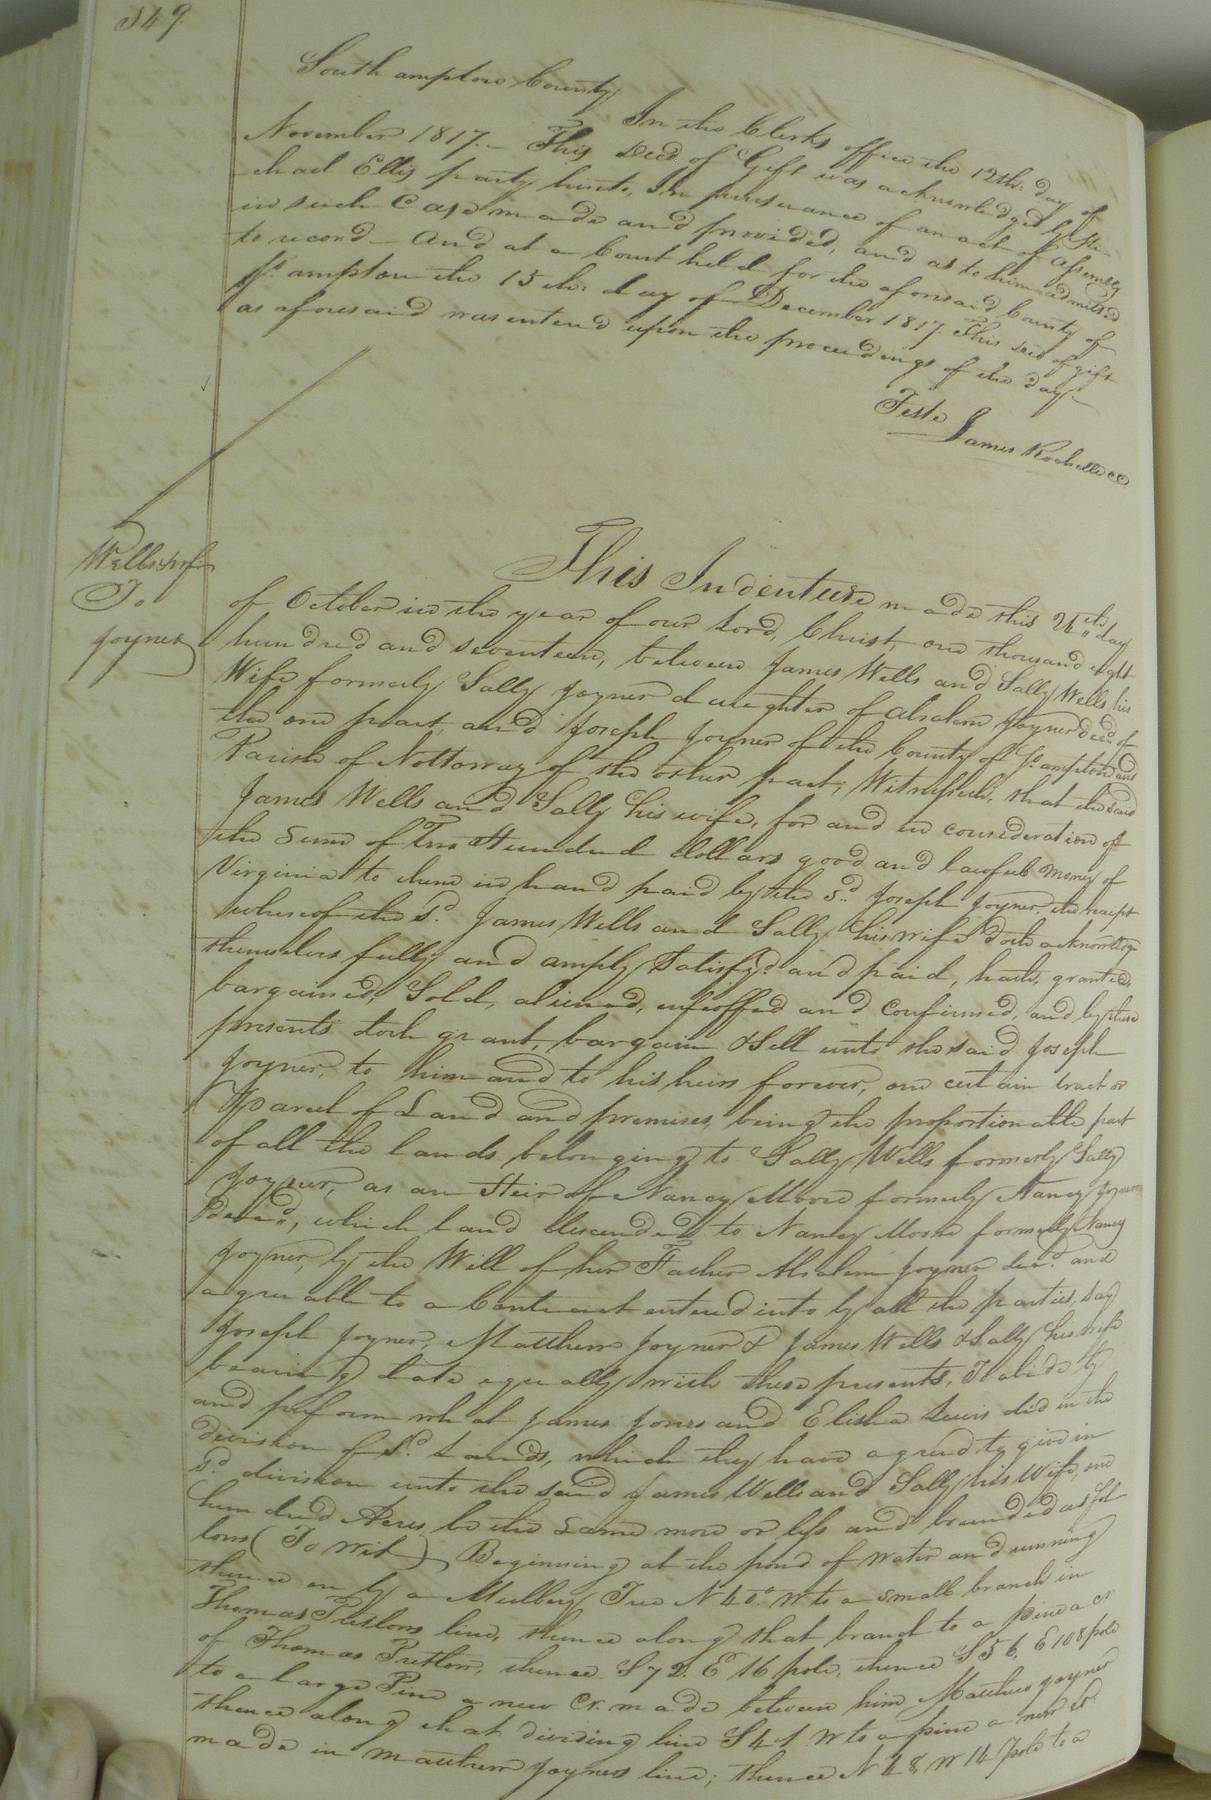 349.
Southampton County;
In the Clerks office the 12th: day of
November 1817.- This Deed of Gift was acknowledged by
-chael Ellis party hereto, In pursuance of an act of Assembly
in such Case made and provided, and as to him admitted
to record - And at a Court held for the aforesaid County of
So. ampton the 15th: day of December 1817. This deed of gift
as aforesaid was entered upon the proceedings of the day.-
Teste
James Rochelle CC
Wells & wife
To
Joyner
This Indenture made this 24th day
of October in the year of our Lord, Christ, one thousand eight
hundred and seventeen, between James Wells and Sally Wells his
Wife formerly Sally Joyner daughter of Absalom Joyner decd. of
the one part, and Joseph Joyner of the County of So. ampton and
Parish of Nottoway of the other part, Witnesseth, that the said
James Wells and Sally his wife, for and in consideration of
the Sum of Two Hundred dollars good and lawful money of
Virginia to them in hand paid by the sd. Joseph Joyner, the receipt
whereof the sd. James Wells and Sally his wife doth acknowledge
themselves fully and amply Satisfyd. and paid, hath, granted
bargained, Sold, aliened, enfeoffed and confirmed, and by these
presents doth grant, bargain & Sell unto the said Joseph
Joyner, to him and to his heirs forever, one certain tract or
Parcel of Land and premises, being the proportionable part
of all the lands belonging to Sally Wells formerly Sally
Joyner, as an Heir of Nancy Moore formerly Nancy Joyner
Decd., which land descended to Nancy Moore formerly Nancy
Joyner, by the Will of her Father Absalom Joyner decd. and
agreeable to a Contract entered into by all the parties, say
Joseph Joyner, Matthew Joyner & James Wells & Sally his wife
bearing date equally with these presents, To abide by
and perform what James Jones and Elisha Lewis did in the
division of sd. Lands, which they have agreed to give in
sd. division unto the said James Wells and Sally his Wife, one
hundred Acres, be the same more or less and bounded as fol
lows (To Wit) Beginning at the pond of water and running
thence on by a Mulbery Tree N 40°. W to a small branch in
Thomas Pretlows line, thence along that branch to a pine a cr
of Thomas Pretlow, thence S 72. E 16 pole, thence S 56. E 108 pole
to a large Pine a new Cr. made between him Matthew Joyner
thence along that dividing line S 41 W to a pine a new Cr
made in Matthew Joyners line; thence N 48, W 14 pole to a